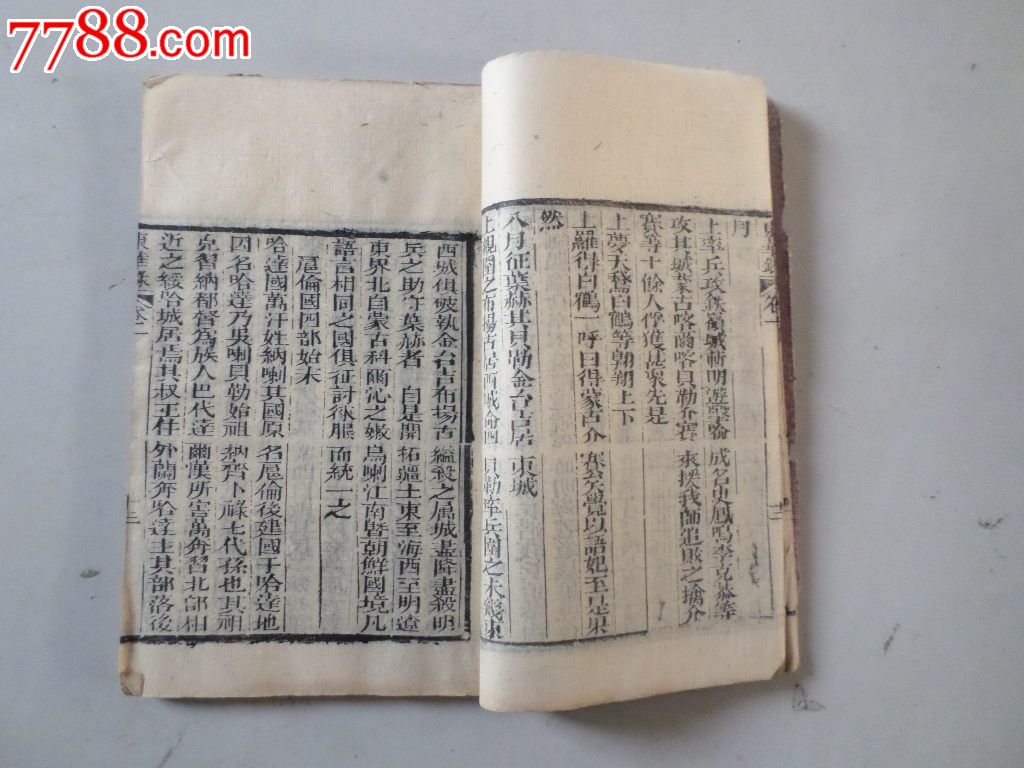 7788.com
東華錄 卷一 十二
月
上率兵攻鐵嶺城斬明遊擊喻成名史鳳鳴李克泰等
攻其城蒙古喀爾喀貝勒介賽來援我師追敗之擒介
賽等十餘人俘獲甚衆先是
上夢天鵞白鶴等朝翔上下
上羅得白鶴一呼曰得蒙古介賽矣覺以語妃至是果
然
八月征葉赫其貝勒金台吉居東城
上親圍之布揚古居西城命四貝勒率兵圍之未幾東
西城俱破執金台吉布揚古縊殺之屬城盡降盡殺明
兵之助守葉赫者 自是開拓疆土東至海西至明遼
東界北自蒙古科爾沁之嫩烏喇江南暨朝鮮國境凡
語言相同之國俱征討徠服而統一之
扈倫國四部始末
哈達國萬汗姓納喇其國原名扈倫後建國于哈達地
因名哈達乃吳喇貝勒始祖納齊卜祿七代孫也其祖
克習納都督為族人巴代達爾漢所害萬奔習北部相
近之綏哈城居焉其叔王住外蘭奔哈達主其部落後
東華錄 卷一 十三